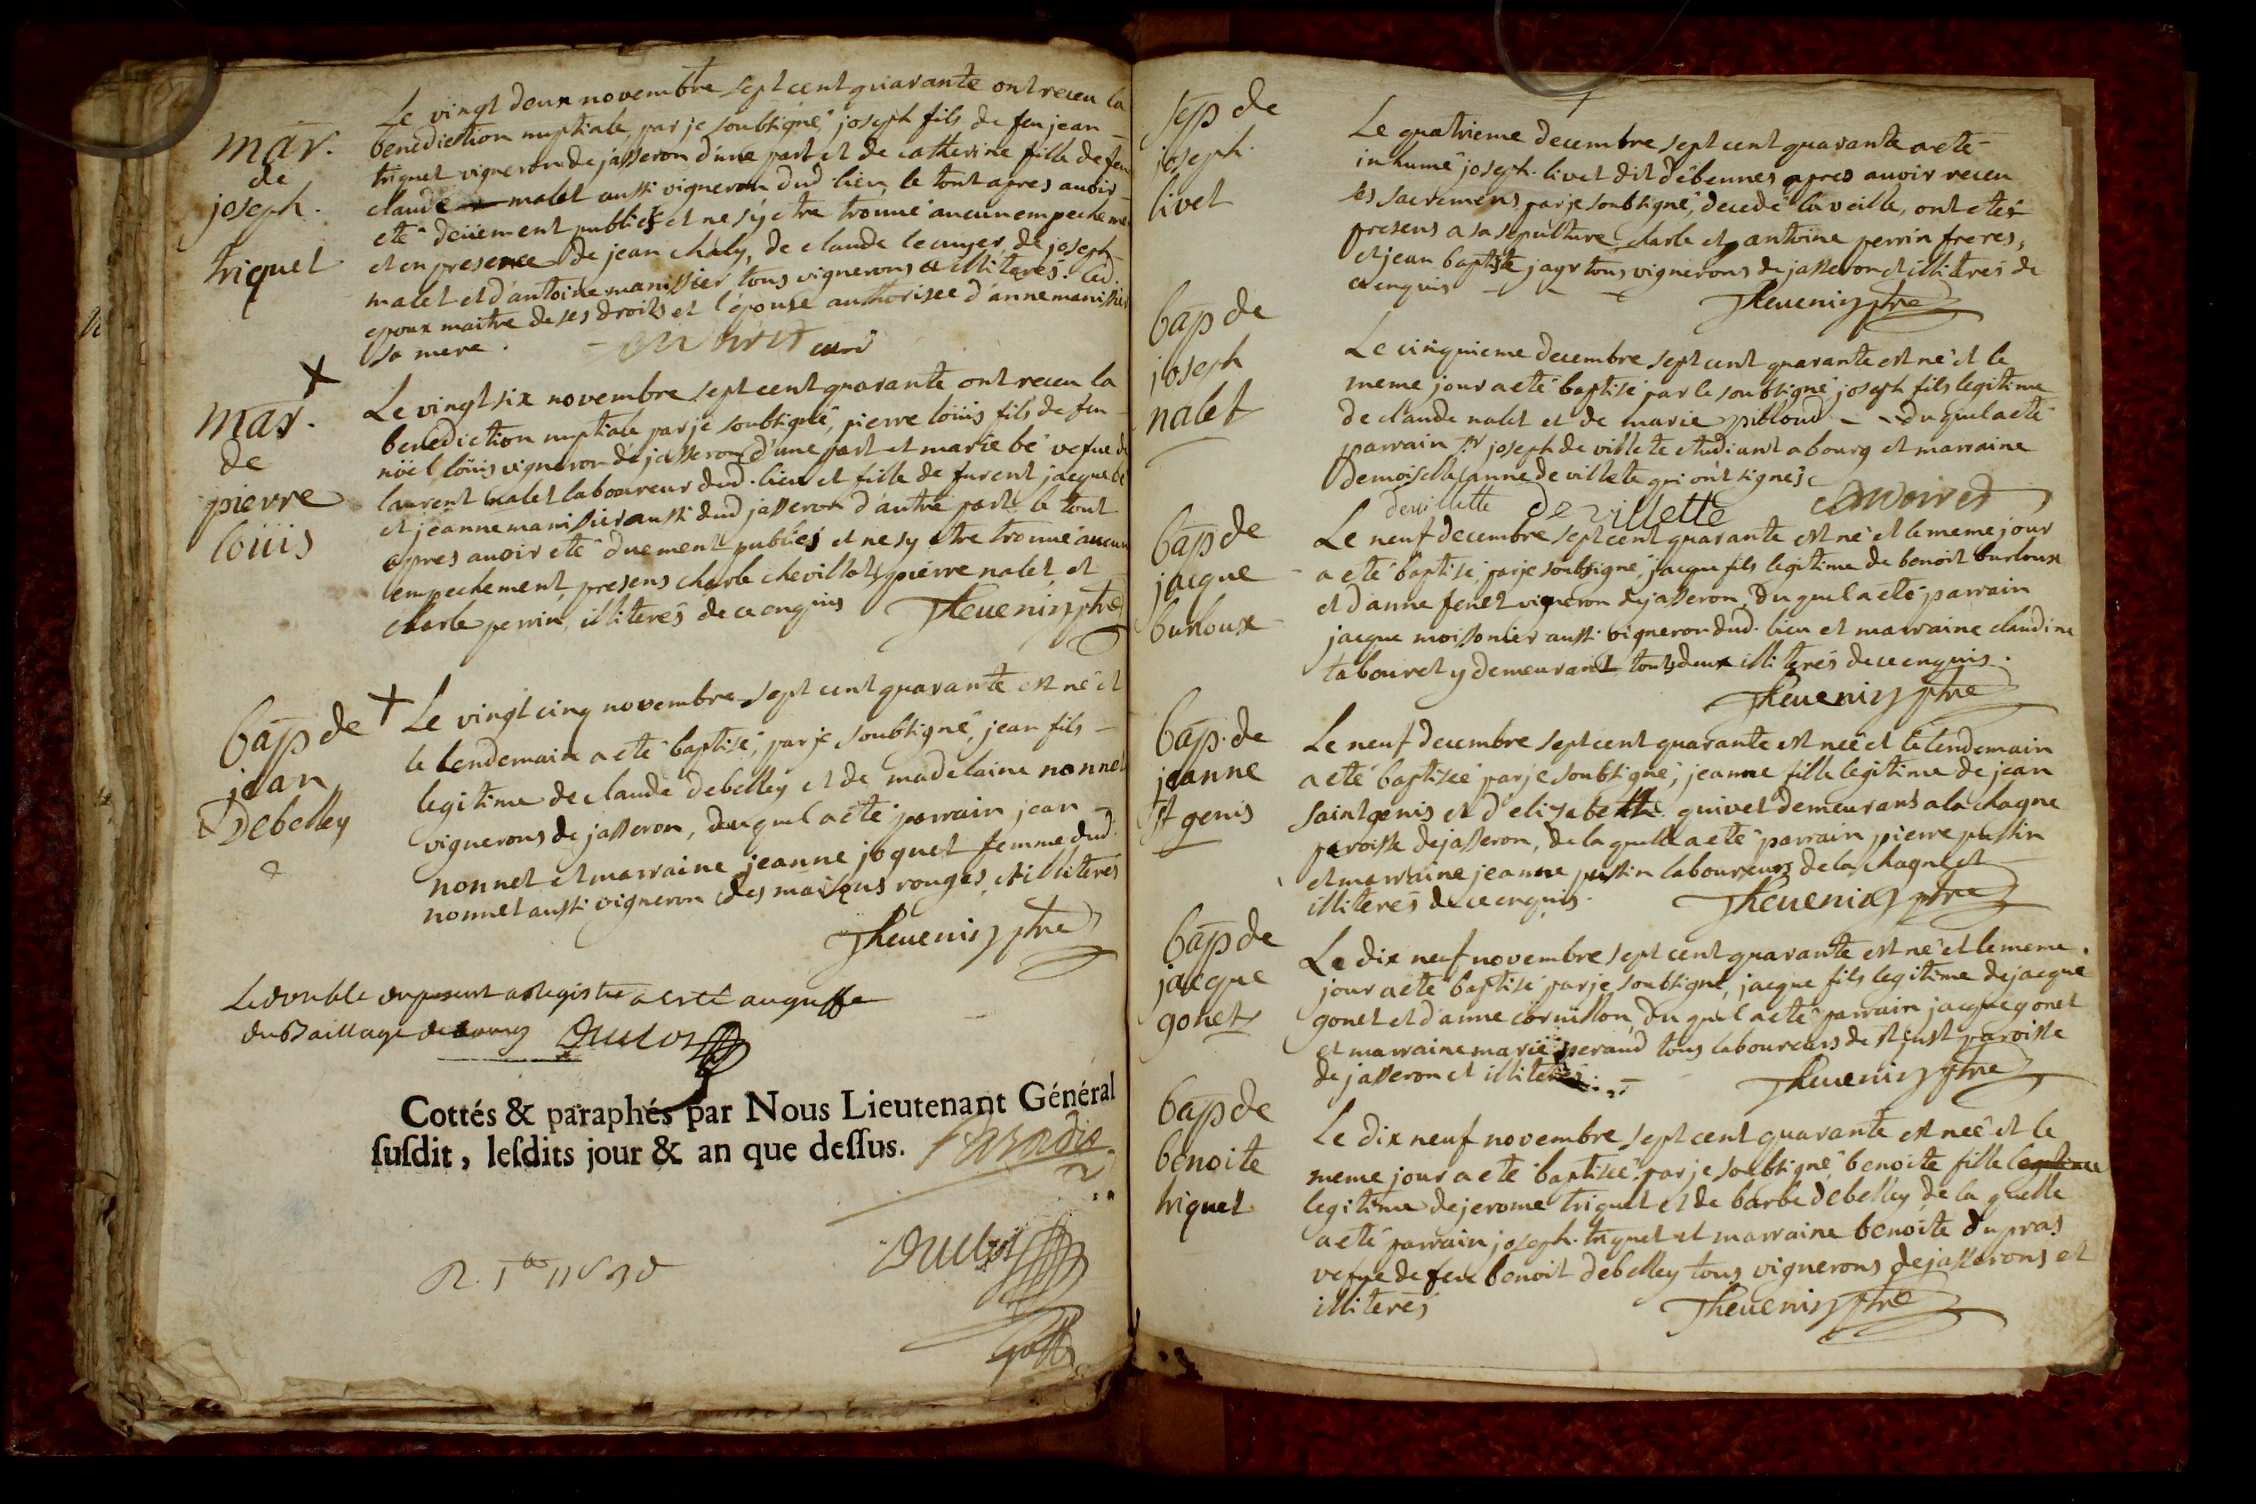 mar.
de
joseph.
triquet
Le vingt deux novembre sept cent quarante ont receu la
benediction nuptiale, par je soubsigné, joseph fils de feu jean
triquet vigneron de jasseron d'une part et de catherine fille de feu
claude malet aussi vigneron dud. lieu, le tout apres avoir
eté deüement publiés et ne s'y etre trouvé aucun empecheme
et en presence de jean chaly, de claude lecuyer, de joseph
malet et d'antoine manissier tous vignerons et illiterés. led.
epoux maitre de ses droits et l'epouse authorisée d'anne manissier
sa mere.
curé
mar.
de
pierre
loüis
Le vingt six novembre sept cent quarante ont receu la
benediction nuptiale par je soubsigné, pierre loüis fils de feu
nöel loüis vigneron de jasseron d'une part et marie bé vefue de
laurent malet laboureur dud. lieu et fille de furent jacque bé
et jeanne manissier aussi dud jasseron d'autre part. le tout
apres avoir eté duement publiés et ne s'y etre trouvé aucun
empechement, presens charle chevillot, pierre nalet, et
charle perrin, illiterés de ce enquis Thevenin ptre
bap de
jean
Debelley
Le vingt cinq novembre sept cent quarante est né et
le lendemain a eté baptisé, par je soubsigné, jean fils
legitime de claude debelley et de madelaine nonnet
vignerons de jasseron, du quel a eté parrain jean
nonnet et marraine jeanne joquet femme dud.
nonnet aussi vigneron des maisons rouges, et illiterés
Thevenin ptre
Le double du present a Registre a esté au greffe
du Baillage de bourg
Cottés & paraphés par Nous Lieutenant Général
susdit, lesdits jour & an que dessus.
sep de
joseph.
livet
Le quatrieme decembre sept cent quarante a eté
inhumé joseph. livet dit débennes apres avoir receu
les sacremens par je soubsigné, decedé la veille, ont etés
presens a sa sepulture charle et antoine perrin freres,
et jean baptiste jayr tous vignerons de jasseron et illiterés de
ce enquis Thevenin ptre
bap de
joseph
nalet
Le cinquieme decembre sept cent quarante est né et le
meme jour a eté baptisé par le soubsigné joseph fils legitime
de claude nalet et de marie pilloud du quel a eté
parrain Sr joseph de villete etudiant a bourg et marraine
demoiselle anne de villete qui ont signés
devillette De villette
bap de
jacque
burloux
Le neuf decembre sept cent quarante est né et le meme jour
a eté baptisé, par je soubsigné, jacque fils legitime de benoit burloux
et d'anne feuet vigneron de jasseron, du quel a eté parrain
jacque moissonier aussi vigneron dud. lieu et marraine claudine
tabouret y demeurant tous deux illiterés de ce enquis.
Thevenin ptre
bap. de
jeanne
st genis
Le neuf decembre sept cent quarante est neé et le lendemain
a eté baptiseé par je soubsigné, jeanne fille legitime de jean
saint genis et d'elizabethe quivet demeurans a la chagne
paroisse de jasseron, de la quelle a eté parrain pierre pestin
et marraine jeanne pestin laboureurs de la chagne et
illiterés de ce enquis. Thevenin ptre
bap de
jacque
gonet
Le dix neuf novembre sept cent quarante est né et le meme
jour a eté baptisé par je soubsigné, jacque fils legitime de jacque
gonet et d'anne cornillon, du quel a eté parrain jacque gonet
et marraine marie peraud tous laboureurs de st just paroisse
de jasseron et illiterés Thevenin ptre
bap de
benoite
triquet
Le dix neuf novembre sept cent quarante est neé et le
meme jour a eté baptiseé par je soubsigné benoite fille legitime
legitime de jerome triquet et de barbe debelley, de la quelle
a eté parrain joseph. triquet et marraine benoite dupras
vefue de feu benoit debelley tous vignerons de jasserons et
illiterés Thevenin ptre